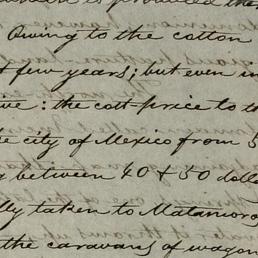 Owing to the cotton
few years; but even in
: the cost price to the
city of Mexico from
between 40 & 50 doll
taken to Matamoros
the caravans of wagon